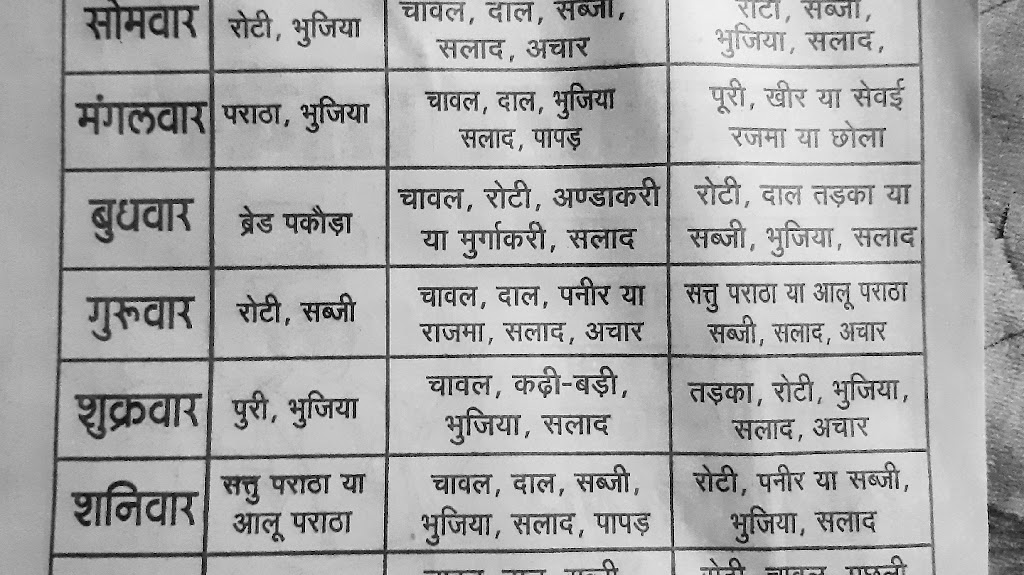 सोमवार
रोटी, भुजिया
चावल, दाल, सब्जी,
सलाद, अचार
रोटी, सब्जी,
भुजिया, सलाद,
मंगलवार
पराठा, भुजिया
चावल, दाल, भुजिया
सलाद, पापड़
पूरी, खीर या सेवई
रजमा या छोला
बुधवार
ब्रेड पकौड़ा
चावल, रोटी, अण्डाकरी
या मुर्गाकरी, सलाद
रोटी, दाल तड़का या
सब्जी, भुजिया, सलाद
गुरूवार
रोटी, सब्जी
चावल, दाल, पनीर या
राजमा, सलाद, अचार
सत्तु पराठा या आलू पराठा
सब्जी, सलाद, अचार
शुक्रवार
पुरी, भुजिया
चावल, कढ़ी-बड़ी,
भुजिया, सलाद
तड़का, रोटी, भुजिया,
सलाद, अचार
शनिवार
सत्तु पराठा या
आलू पराठा
चावल, दाल, सब्जी,
भुजिया, सलाद, पापड़
रोटी, पनीर या सब्जी,
भुजिया, सलाद